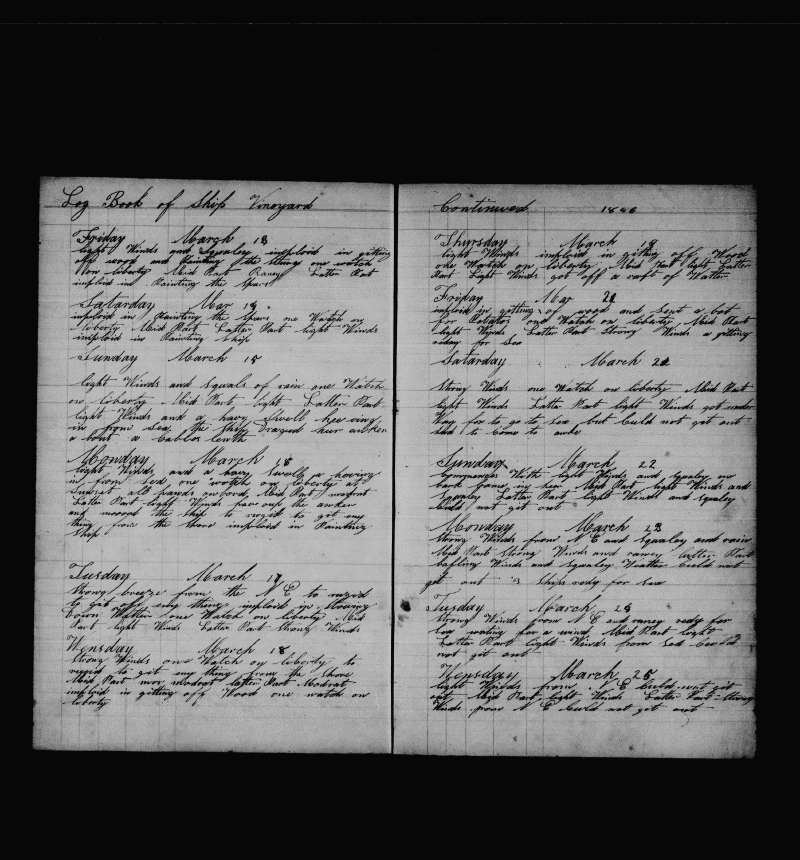 Log Book of Ship Vineyard
Friday March 13
light Winds and Squaley imploid in gitting
off wood and Painting the Ship one wotch
on liberty Mid Part Raney Latter Part
imploid in Painting the Spars
Satarday Mar 14
imploid in Painting the Spars one Watch on
liberty Mid Part Latter Part light Winds
imploid in Painting Ship
Sunday March 15
light Winds and Squals of rain one Watch
on liberty Mid Part light Latter Part
light Winds and a havy Swell heaving
in from Sea the Ship Draged hur anker
a bout a cabler lenth
Monday March 16
light Winds and a havy Swell a hoving
in from Sea one wotch on liberty at
Sunset all hands onbord Mid Part modrat
Latter Part light Winds the anker
and moored the Ship to rugid to git any
thing from the Shore imploid in Painting
Ship
Tusday March 17
Strong breeze from the N E to rugid
to git off any thing imploid in Stowing
Down Watter one Watch on liberty Mid
Part light Winds Latter Part Strong Winds
Wensday March 18
Strong Winds one Watch on liberty to
rugid to git any thing from the Shore
Mid Part mor modrat Latter Part Modrat
imploid in gitting off Wood one watch on
liberty
Continued
Thursday March 19
light Winds imploid in gitting off Wood
one Wotch on liberty Mid Part light Latter
Part Light Winds got off a raft of Watter
Friday Mar 20
imploid in gitting of wood and Sent a bot
for Potatos one Watch on liberty Mid Part
light Winds Latter Part Strong Winds a gitting
reday for Sea
Satarday March 21
Strong Winds one Watch on liberty Mid Part
light Winds Latter Part light Winds got under
Way for to go to Sea but Culd not git out
had to Come to anke
Sunday March 22
Commences With light Winds and Squaley one
bark Came in hear Mid Part light Winds and
Squaley Latter Part light Winds and Squaley
Culd not git out
Monday March 23
Strong Winds from N E and Squaley and rain
Mid Part Strong Winds and raney Latter Part
bafling Winds and Squaley Weather Culd not
git out 3 Ships redy for Sea
Tusday March 24
Strong Winds from N E and raney redy for
Sea wating for a wind Mid Part light
Latter Part light Winds from Sea Culd
not git out
Wensday March 25
light Winds from N E Culd not git
out Mid Part light Wind Latter Part Strong
Winds from N E Culd not git out